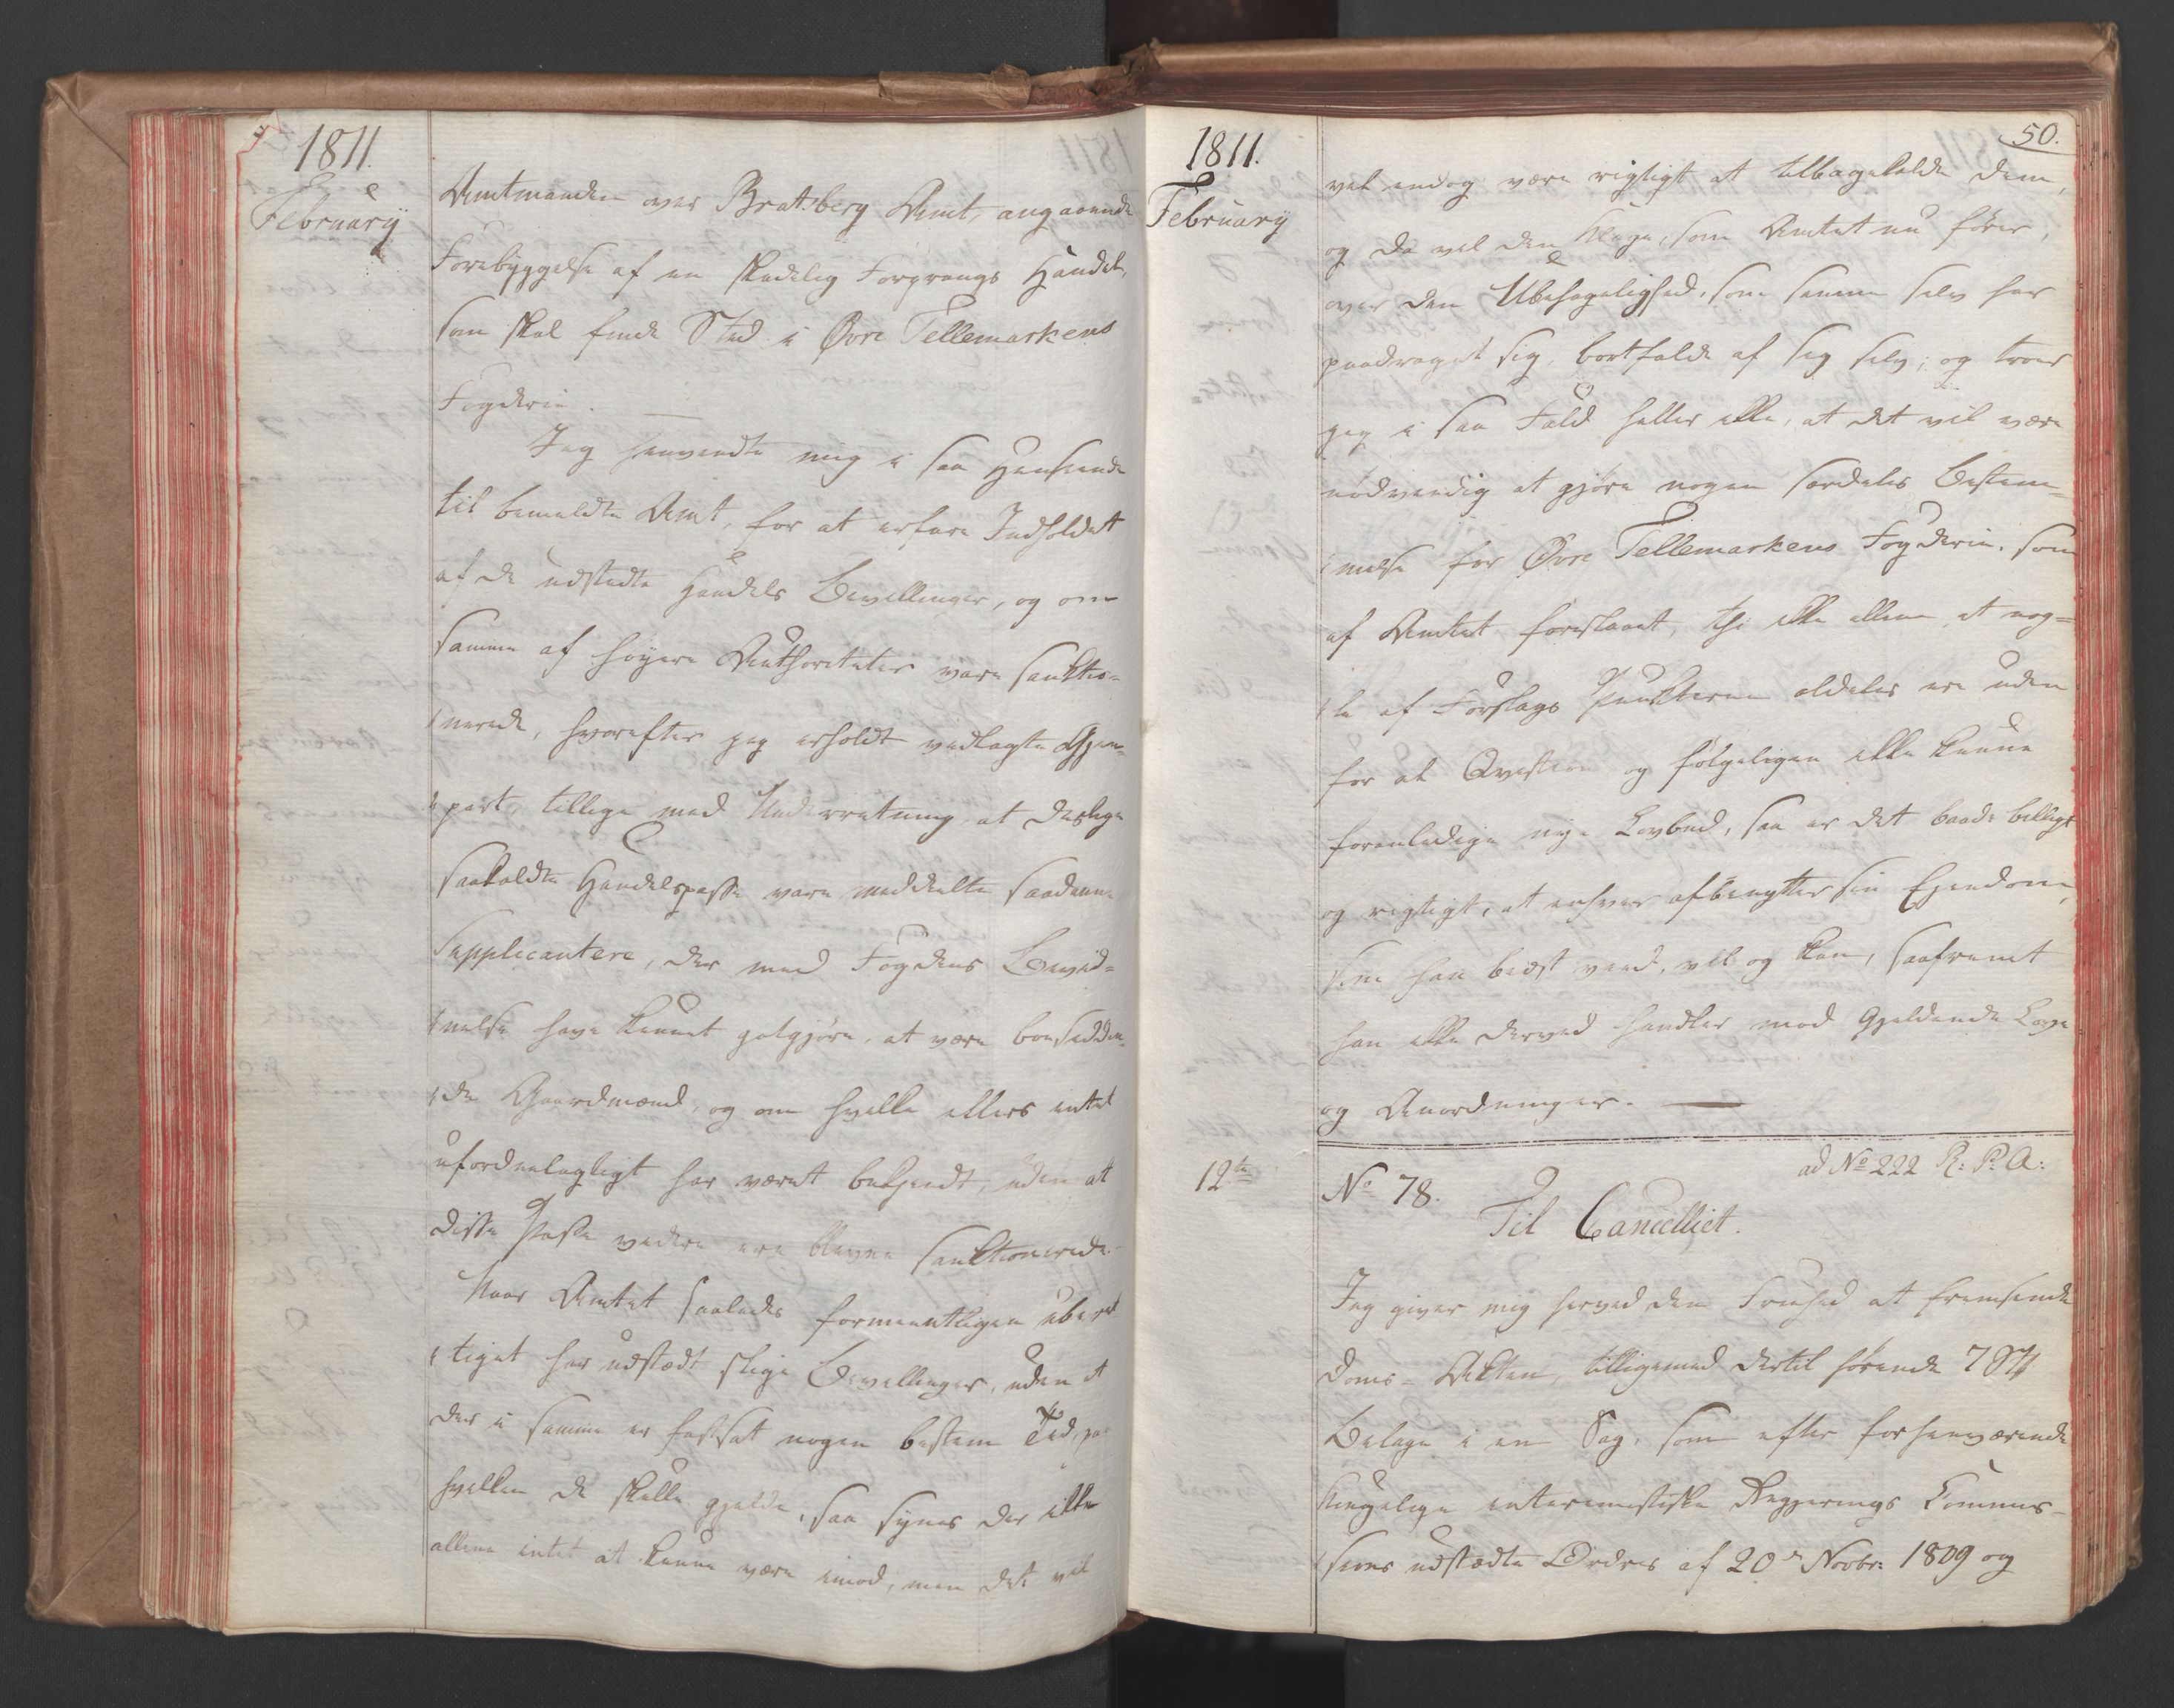 1811.
February
Amtmanden over Bratsberg Amt, angaaende
Forebyggelse af en skadelig Forprangs Handel,
som skal finde Sted i Øvre Tellemarkens
Fogderie.
Jeg henvendte mig i saa Henseende
til bemeldte Amt, for at erfare Indholdet
af de udstedte Handels Bevillinger, og om
samme af høyere Authoriteter vare sanktio=
nerede, hvorefter jeg erholdt vedlagte Gjen=
part, tillige med Underretning at deslige
saakaldte Handelspasse vare meddeelte saadanne
Supplicantere, der med Fogdens Bevid=
nelse have kunnet godtgjøre, at være boesidden=
de Gaardmænd, og om hvilke ellers intet
ufordeelagtigt har været bekjendt, uden at
disse Passe videre ere blevne sanktionerede.
Naar Amtet saaledes formeentligen uberet
tiget har udstædt slige Bevillinger, uden at
der i samme er fastsat nogen bestem Tid, paa
hvilken de skulle gjelde, saa synes der ikke
allene intet at kunne være imod, men det vil
1811.
February
50.
vel endog være rigtigt at tilbagekalde dem,
og da vil den Klage, som Amtet nu fører,
over den Ubehagelighed, som samme selv har
paadraget sig, bortfalde af sig selv; og troer
jeg i saa Fald heller ikke, at det vil være
nødvendig at gjøre nogen særdeles Bestem=
melse for Øvre Tellemarkens Fogderie, som
af Amtet foreslaaet, thi ikke allene at nog=
le af Forslags Punkterne aldeles ere uden
for al Qvæstion og følgeligen ikke kunne
foranledige nye Lovbud, saa er det baade billigt
og rigtigt, at enhver afbenytter sin Ejendom,
som han bedst veed, vil og kan, saafremt
han ikke derved handler mod gjeldende Love
og Anordninger.
12te
No 78.
ad No 222 R: P: A:
Til Cancelliet.
Jeg giver mig herved den Friehed at fremsende
Doms-Akten, tilligemed dertil hørende
Bilage i en Sag, som efter forhenværende
kongelige interimistiske Regjerings Commis=
sions udstædte Ordres af 20de Novbr: 1809 og